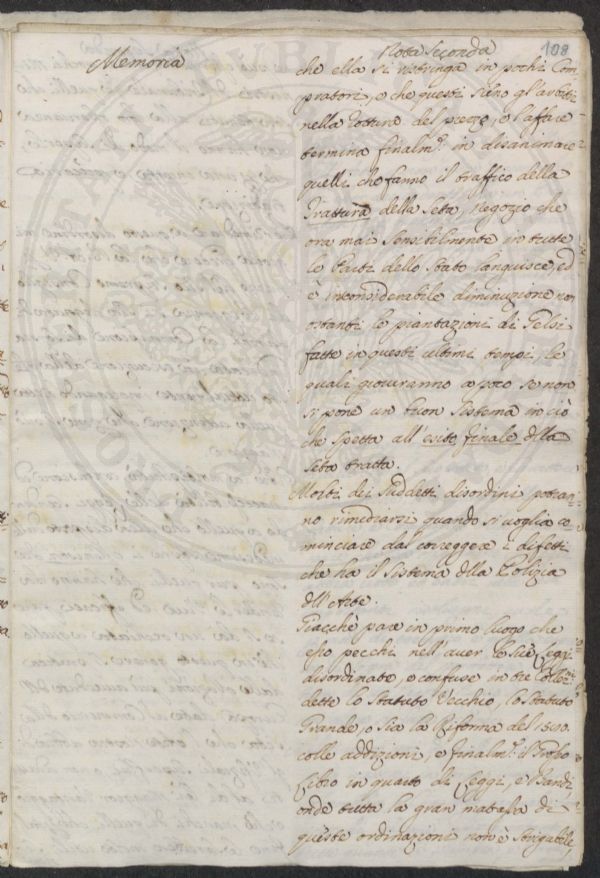 108
Memoria
Nota Seconda
che ella si ristringa in pochi Com=
pratori, e che questi sieno gl'arbitri
nella rottura del prezzo, e l'affare
termina finalm.e in disanimare
quelli che fanno il traffico della
Trattura della Seta, negozio che
ora mai sensibilmente in tutte
le Parti dello Stato languisce, ed
è inconsiderabile diminuzione non
ostanti le piantazioni di Gelsi
fatte in questi ultimi tempi, le
quali gioveranno a poco se non
si pone un buon Sistema in ciò
che spetta all'esito finale della
Seta tratta.
Molti dei Suddetti disordini potran=
no rimediarsi quando si voglia co=
minciare dal correggere i difetti
che ha il Sistema della Polizia
dell'Arte.
Giacchè pare in primo luogo che
essa pecchi nell'aver le sue Leggi
disordinate, e confuse in tre
dette lo Statuto Vecchio, lo Statuto
Grande, o sia la Riforma del 1580.
colle addizioni, e finalm.e il
Libro in quarto di Leggi, e Bandi
onde tutta la gran matassa di
queste ordinazioni non è strigabile,